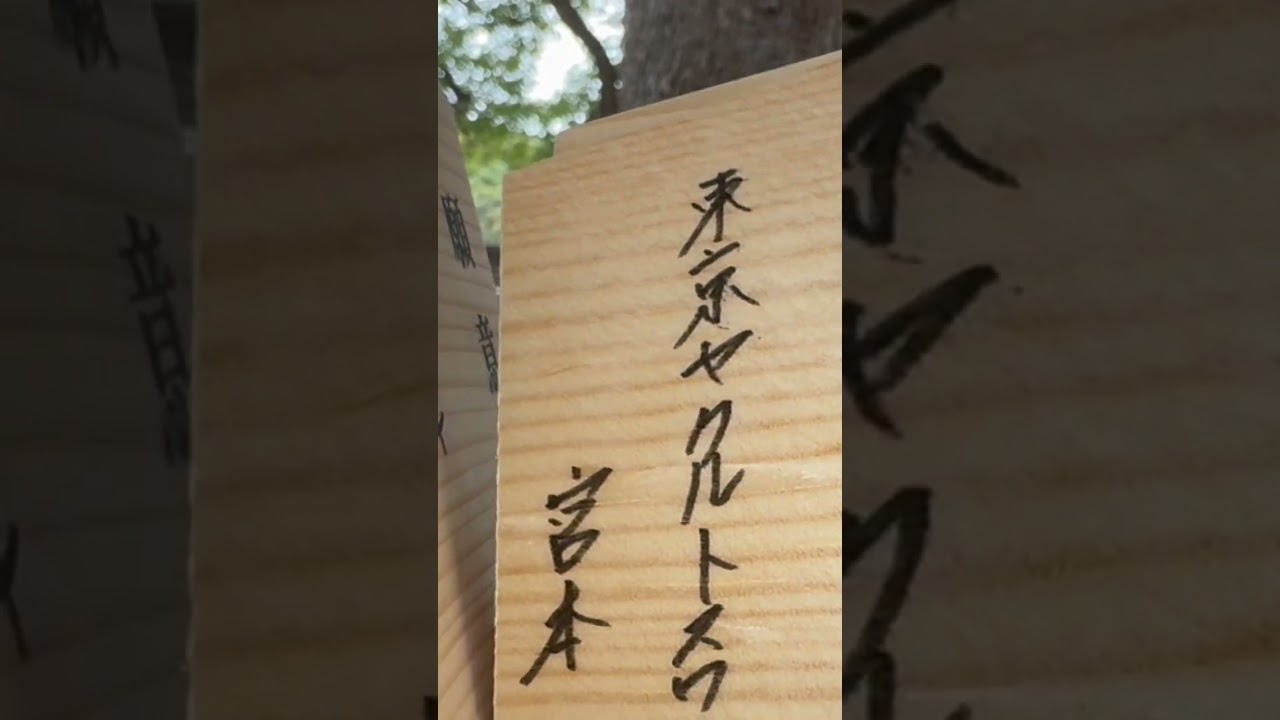 東京ヤクルトスワ
宮本
願
音